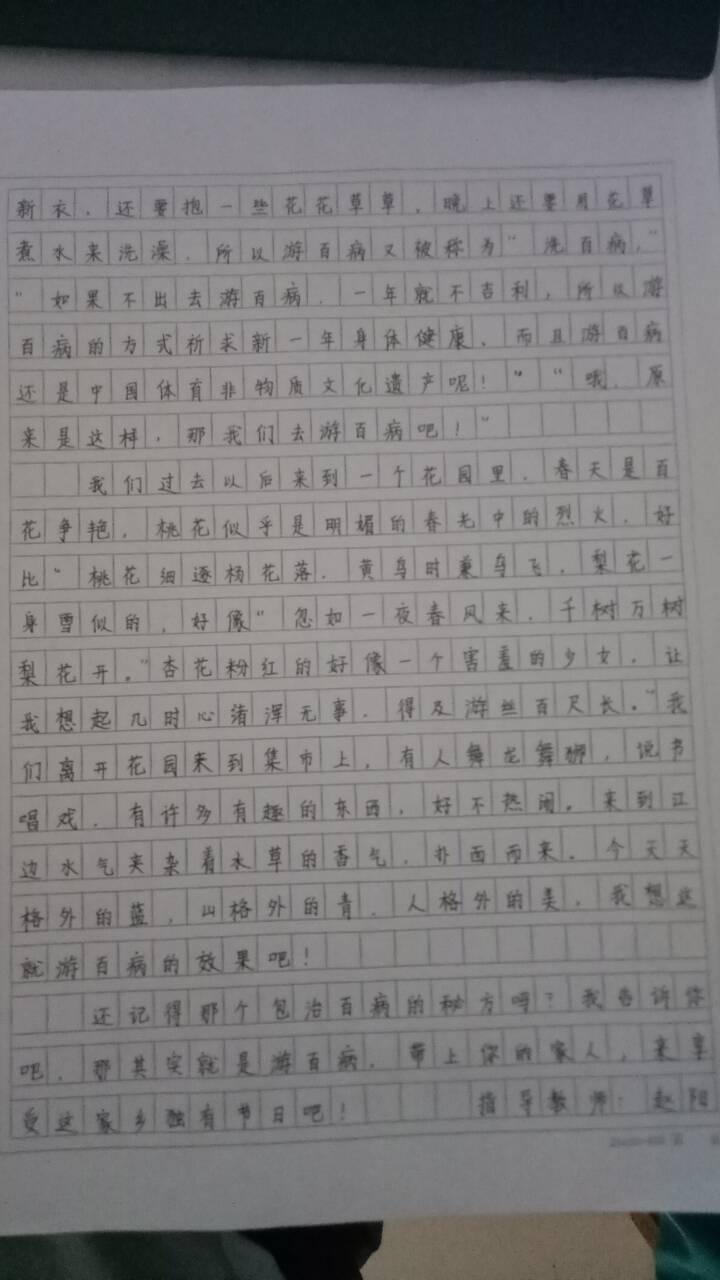 新衣，还要抱一些花花草草，晚上还要用花草
煮水来洗澡，所以游百病又被称为“洗百病，”
“如果不出去游百病，一年就不吉利，所以游
百病的方式祈求新一年身体健康，而且游百病
还是中国体育非物质文化遗产呢！”“哦，原
来是这样，那我们去游百病吧！”
我们过去以后来到一个花园里，春天是百
花争艳，桃花似乎是明媚的春光中的烈火，好
比“桃花细逐杨花落，黄鸟时兼鸟飞，梨花一
身雪似的，好像“忽如一夜春风来，千树万树
梨花开。”杏花粉红的好像一个害羞的少女，让
我想起几时心渚浑无事，得及游丝百尺长。”我
们离开花园来到集市上，有人舞龙舞狮，说书
唱戏，有许多有趣的东西，好不热闹。来到江
边水气夹杂着水草的香气，扑面而来。今天天
格外的蓝，山格外的青，人格外的美，我想这
就游百病的效果吧！
还记得那个包治百病的秘方吗？我告诉你
吧，那其实就是游百病，带上你的家人，来享
受这家乡独有节日吧！ 指导教师：赵阳